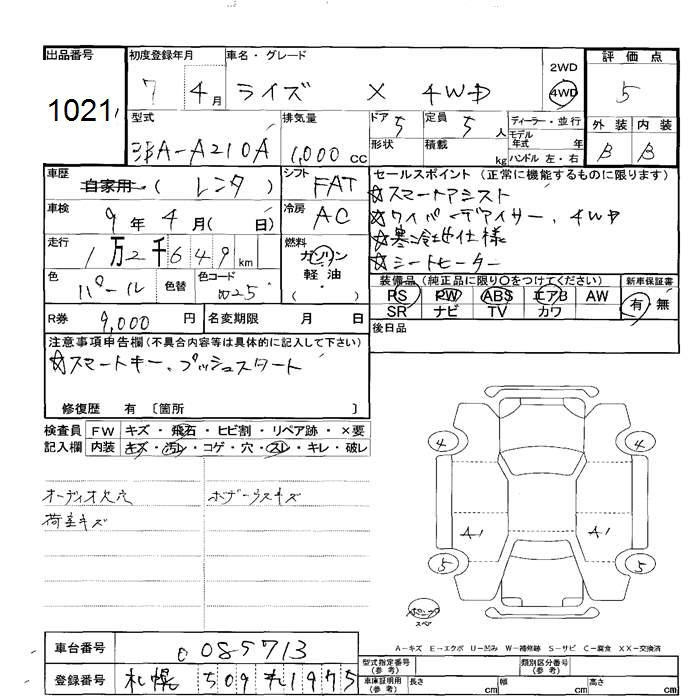 出品番号
1021
初度登録年月
7 4月
車名・グレード
ライズ X 4WD
2WD
4WD
評価点
5
外装 内装
B B
型式
3BA-A210A
排気量
1,000 cc
ドア 5
形状
定員 5 人
積載 kg
ディーラー・並行
モデル年式 年
ハンドル 左・右
車歴
自家用 ( レンタ )
シフト
FAT
車検
9年 4月( 日)
冷房
AC
走行
1万2千649 km
燃料
ガソリン
軽油
( ・ )
色
パール
色替
色コード
W25
R券
9,000 円
名変期限 月 日
セールスポイント (正常に機能するものに限ります)
☆スマートアシスト
☆ワイパーデアイサー、4WD
☆寒冷地仕様
☆シートヒーター
装備品 (純正品に限り○をつけてください)
PS PW ABS エアB AW
SR ナビ TV カワ
新車保証書
有 無
後日品
注意事項申告欄 (不具合内容等は具体的に記入して下さい)
☆スマートキー、プッシュスタート
修復歴 有 〔箇所 〕
検査員記入欄
FW キズ・飛石・ヒビ割・リペア跡・×要
内装 キズ・汚レ・コゲ・穴・スレ・キレ・破レ
オーディオ欠穴
荷室キズ
ホザーラスキズ
4 4
A1 A1
5 5
スペア
A-キズ E-エクボ U-凹み W-補修跡 S-サビ C-腐食 XX-交換済
車台番号
0085713
登録番号
札幌 509 れ 1975
型式指定番号 (参考)
類別区分番号 (参考)
車庫証明用 (参考)
長さ cm 幅 cm 高さ cm